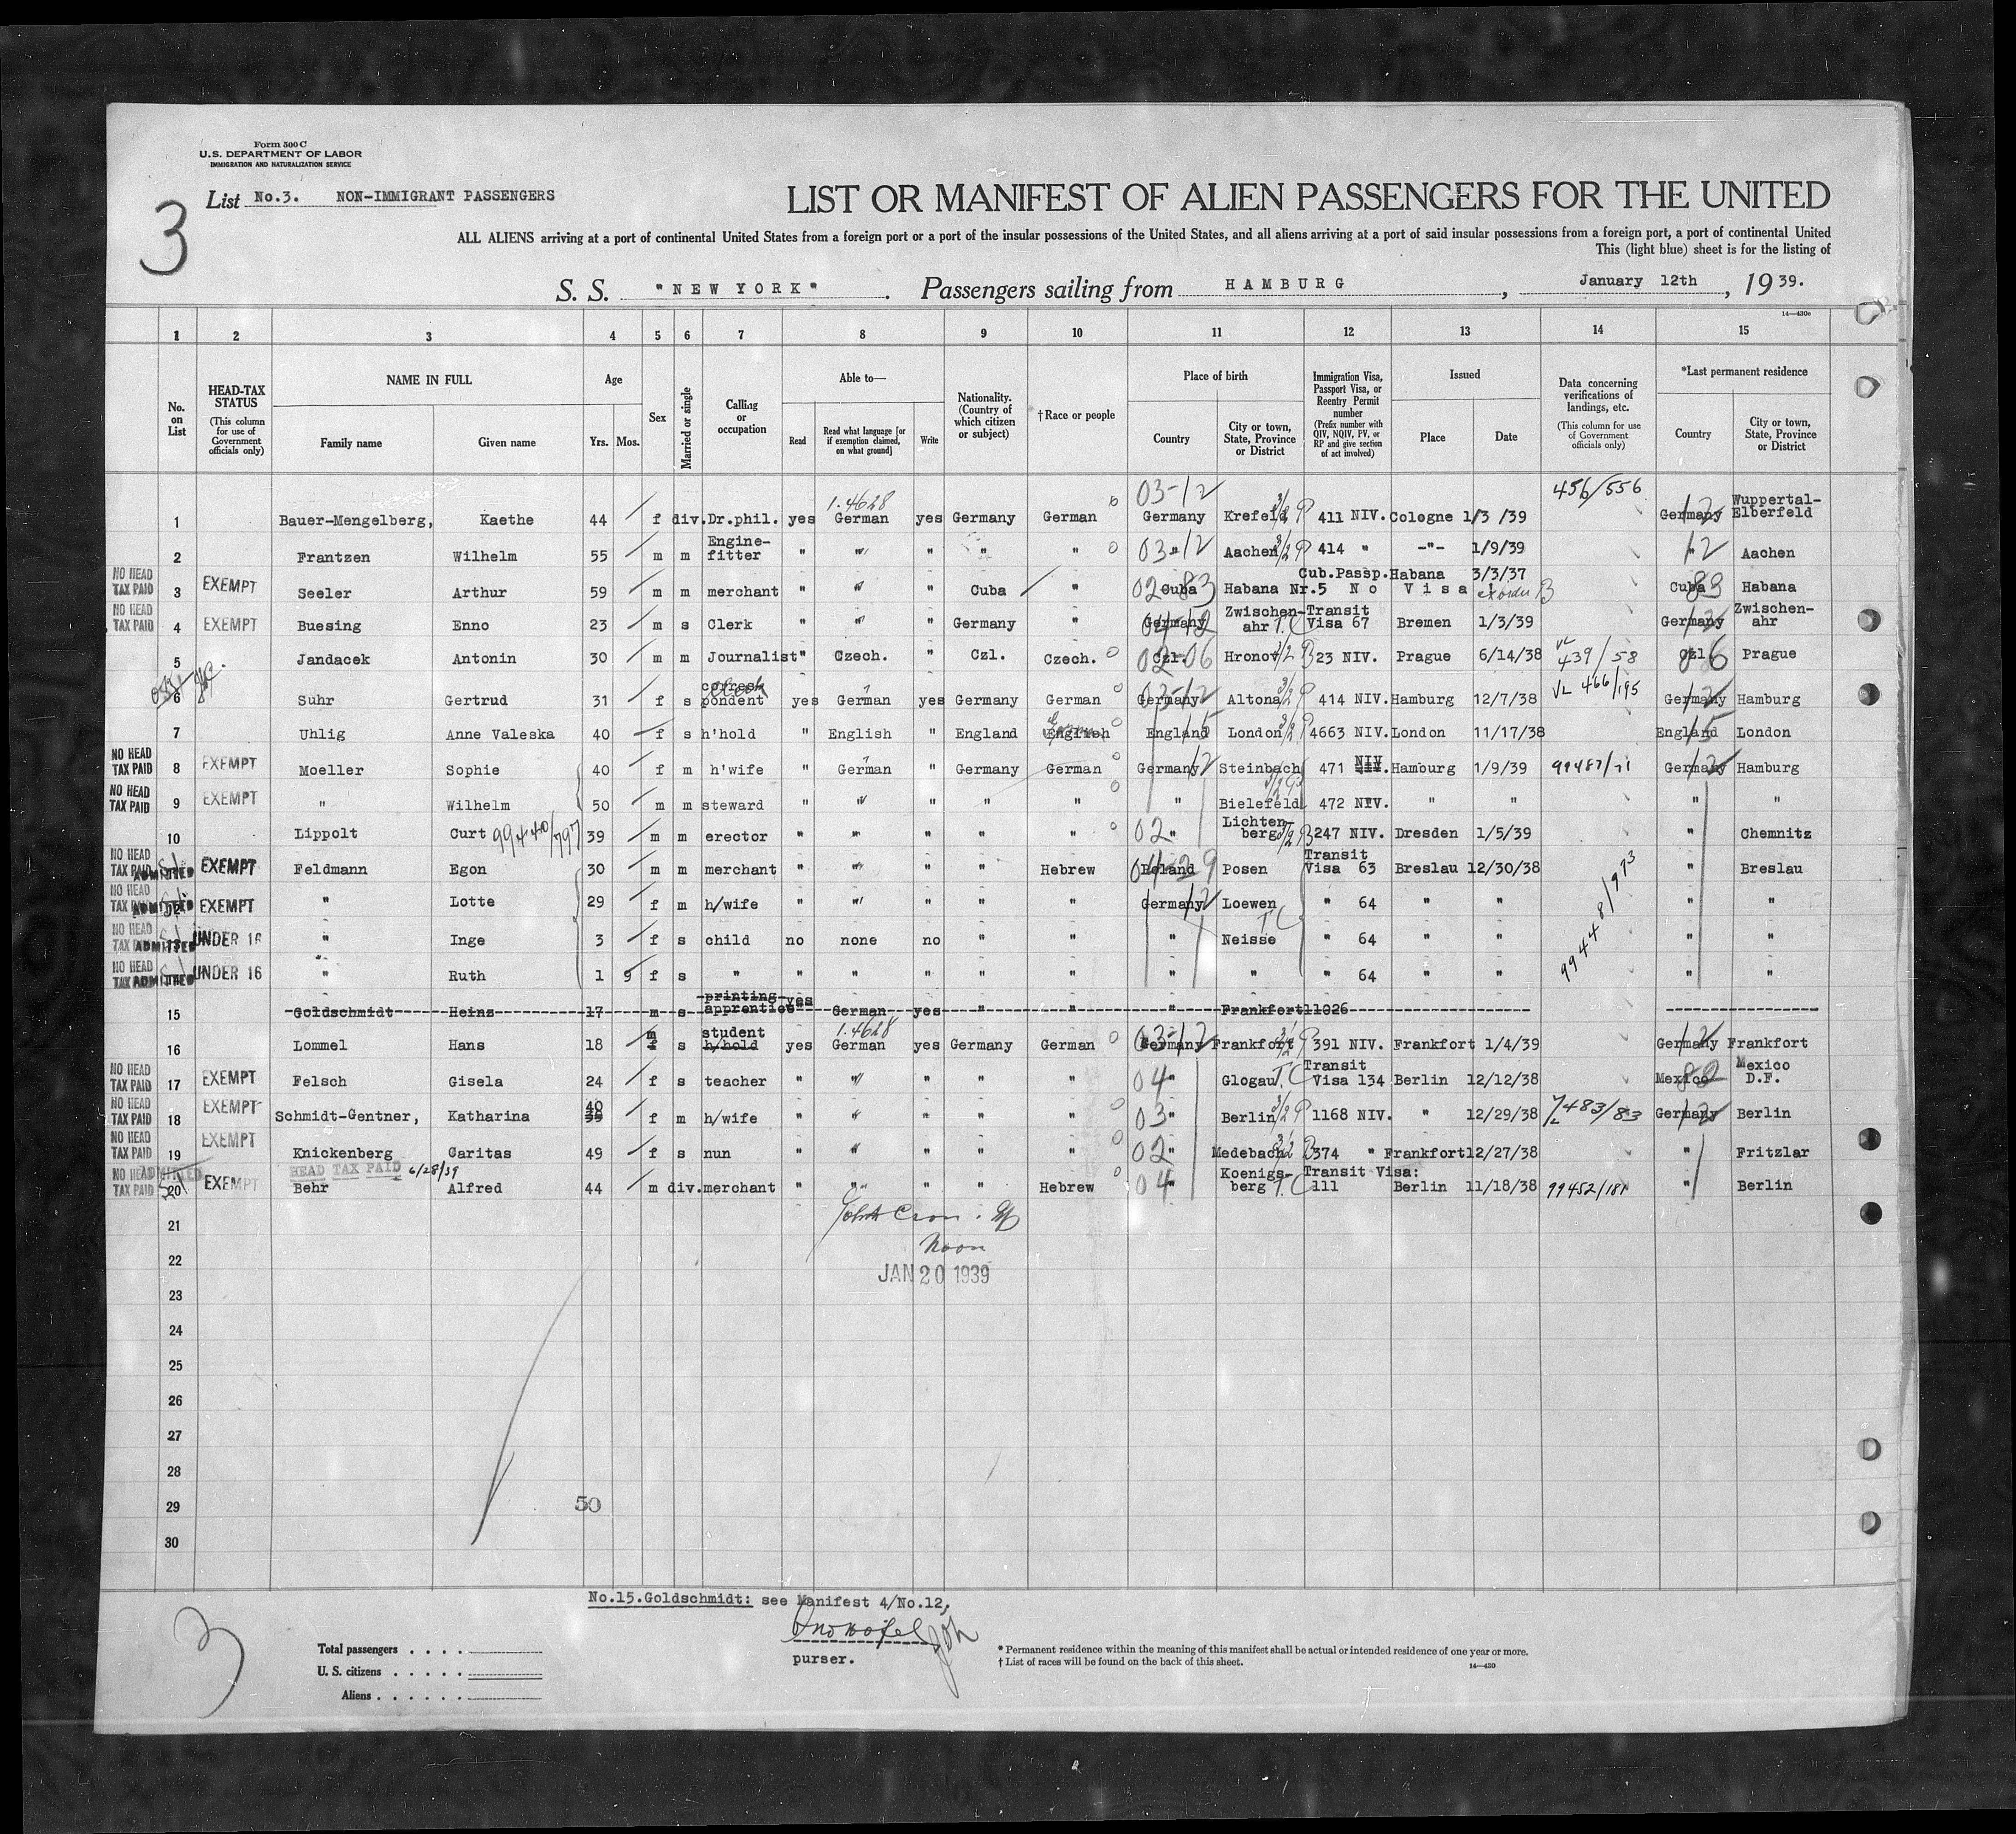 Form 500 C
U.S. DEPARTMENT OF LABOR
IMMIGRATION AND NATURALIZATION SERVICE
3
List No.3. NON-IMMIGRANT PASSENGERS
LIST OR MANIFEST OF ALIEN PASSENGERS FOR THE UNITED
ALL ALIENS arriving at a port of continental United States from a foreign port or a port of the insular possessions of the United States, and all aliens arriving at a port of said insular possessions from a foreign port, a port of continental United
This (light blue) sheet is for the listing of
S. S. "NEW YORK". Passengers sailing from HAMBURG, January 12th, 1939.
14—430e
1 2 3 4 5 6 7 8 9 10 11 12 13 14 15
No. on List
HEAD-TAX STATUS (This column for use of Government officials only)
NAME IN FULL Family name Given name
Age Yrs. Mos.
Sex
Married or single
Calling or occupation
Able to— Read Read what language [or if exemption claimed, on what ground] Write
Nationality. (Country of which citizen or subject)
†Race or people
Place of birth Country City or town, State, Province or District
Immigration Visa, Passport Visa, or Reentry Permit number (Prefix number with QIV, NQIV, PV, or RP and give section of act involved)
Issued Place Date
Data concerning verifications of landings, etc. (This column for use of Government officials only)
*Last permanent residence Country City or town, State, Province or District
03-12 1.4628 456/556
1 Bauer-Mengelberg, Kaethe 44 f div. Dr.phil. yes German yes Germany German Germany Krefeld 411 NIV. Cologne 1/3 /39 Germany Wuppertal-Elberfeld
2 Frantzen Wilhelm 55 m m Engine-fitter " " " " " 03-12 " Aachen 414 " -"- 1/9/39 " 12 Aachen
NO HEAD TAX PAID 3 EXEMPT Seeler Arthur 59 m m merchant " " " Cuba " Cuba Habana Cub.Passp. Nr.5 No Visa Habana 3/3/37 Cuba 83 Habana
NO HEAD TAX PAID 4 EXEMPT Buesing Enno 23 m s Clerk " " " Germany " Germany Zwischen-ahr Transit Visa 67 Bremen 1/3/39 Germany Zwischen-ahr
5 Jandacek Antonin 30 m m Journalist " Czech. " Czl. Czech. Czl. Hronov 23 NIV. Prague 6/14/38 439/58 Czl 6 Prague
6 Suhr Gertrud 31 f s corres-pondent yes German yes Germany German Germany Altona 414 NIV. Hamburg 12/7/38 VL 466/195 Germany Hamburg
7 Uhlig Anne Valeska 40 f s h'hold " English " England English England London 4663 NIV. London 11/17/38 England London
NO HEAD TAX PAID 8 EXEMPT Moeller Sophie 40 f m h'wife " German " Germany German Germany Steinbach 471 NIV. Hamburg 1/9/39 99487/71 Germany Hamburg
NO HEAD TAX PAID 9 EXEMPT " Wilhelm 50 m m steward " " " " " " Bielefeld 472 NIV. " " " "
10 Lippolt Curt 99440/797 39 m m erector " " " " " 02 " Lichten-berg 247 NIV. Dresden 1/5/39 " Chemnitz
NO HEAD TAX PAID ADMITTED EXEMPT Feldmann Egon 30 m m merchant " " " " Hebrew Poland Posen Transit Visa 63 Breslau 12/30/38 " Breslau
NO HEAD TAX PAID ADMITTED 12 EXEMPT " Lotte 29 f m h/wife " " " " " Germany Loewen " 64 " " " "
NO HEAD TAX ADMITTED 13 UNDER 16 " Inge 3 f s child no none no " " " Neisse " 64 " " 99448/973 " "
NO HEAD TAX ADMITTED UNDER 16 " Ruth 1 9 f s " " " " " " " " " 64 " " " "
15 Goldschmidt Heinz 17 m s printing apprentice yes German yes " " " Frankfort 11026
16 Lommel Hans 18 m f s student h/hold yes 1.4628 German yes Germany German Germany Frankfort 391 NIV. Frankfort 1/4/39 Germany Frankfort
NO HEAD TAX PAID 17 EXEMPT Felsch Gisela 24 f s teacher " " " " " 04 " Glogau T.C Transit Visa 134 Berlin 12/12/38 Mexico 82 Mexico D.F.
NO HEAD TAX PAID 18 EXEMPT Schmidt-Gentner, Katharina 40 39 f m h/wife " " " " " 03 " Berlin 1168 NIV. " 12/29/38 483/83 Germany Berlin
NO HEAD TAX PAID 19 EXEMPT Knickenberg Caritas 49 f s nun " " " " " 02 " Medebach 374 " Frankfort 12/27/38 " Fritzlar
HEAD TAX PAID 6/28/39
NO HEAD TAX PAID ADMITTED 20 EXEMPT Behr Alfred 44 m div. merchant " " " " Hebrew 04 " Koenigs-berg T.C Transit Visa: 111 Berlin 11/18/38 99452/181 " Berlin
21
22 Noon
JAN 20 1939
23
24
25
26
27
28
29 50
30
No.15.Goldschmidt: see Manifest 4/No.12,
3
purser.
Total passengers . . . .
U. S. citizens . . . . .
Aliens . . . . . .
* Permanent residence within the meaning of this manifest shall be actual or intended residence of one year or more.
† List of races will be found on the back of this sheet.
14—430